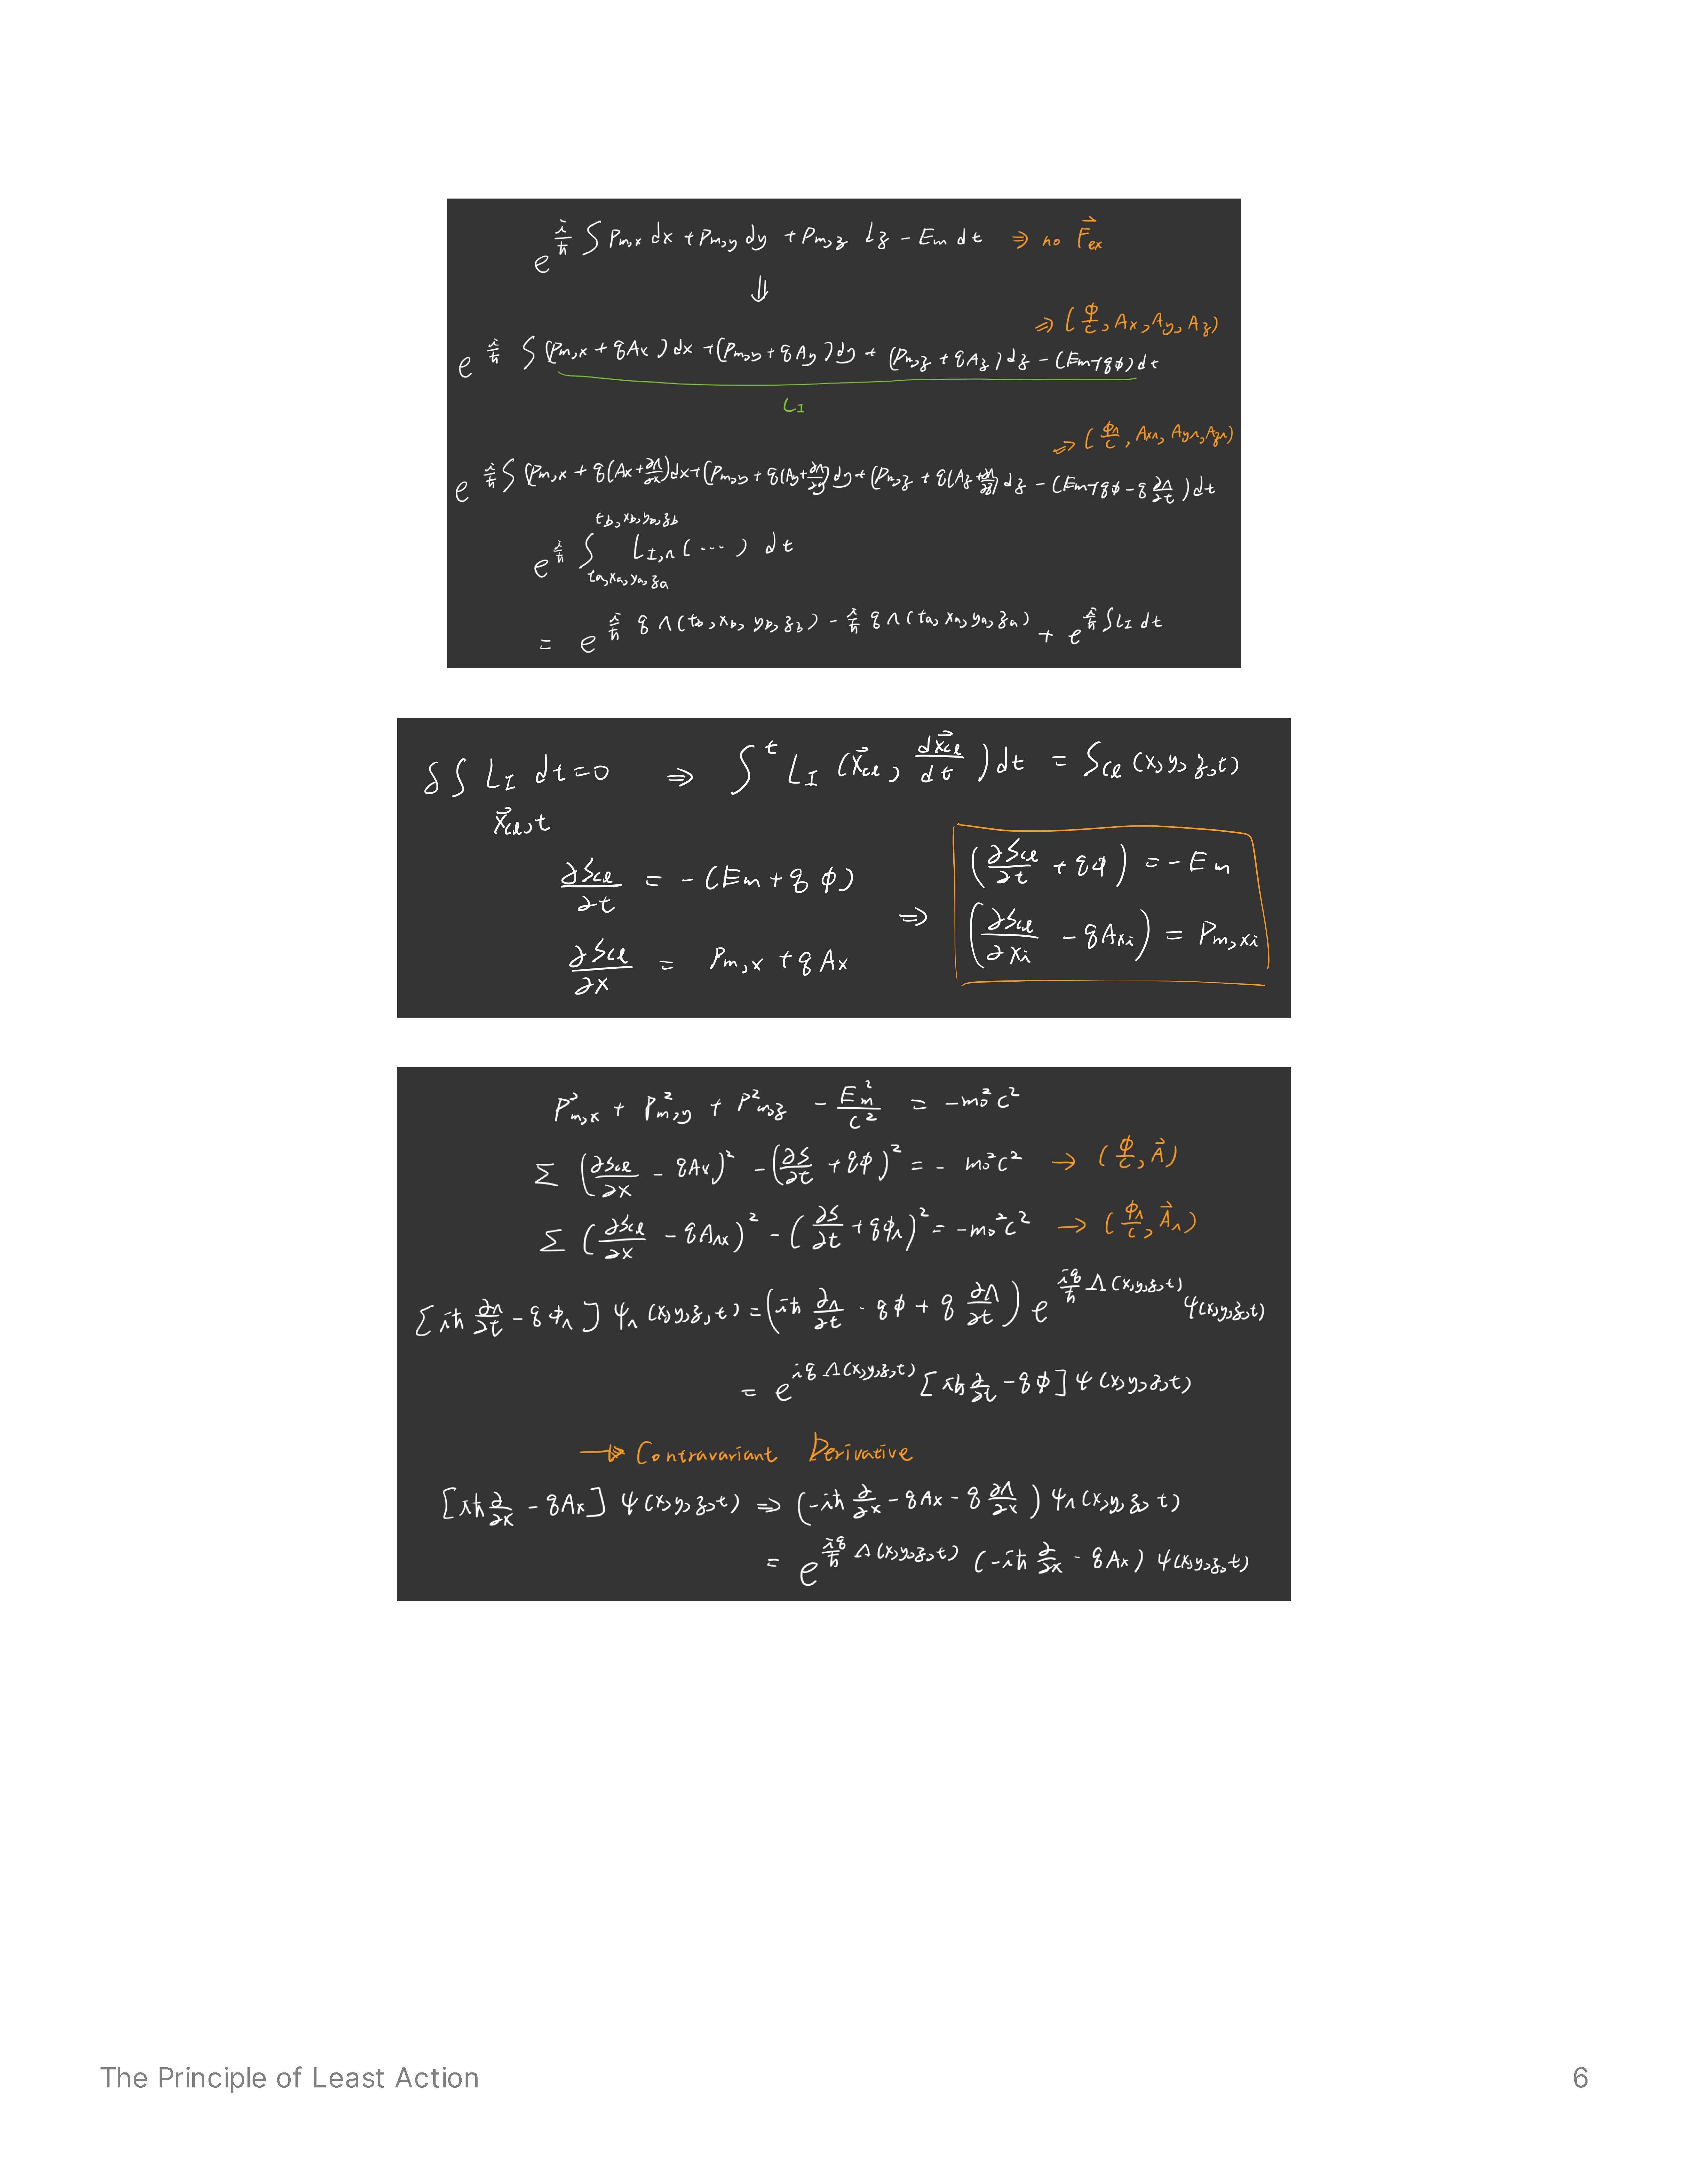 e^{\frac{i}{\hbar} ∫ P_{m,x} dx + P_{m,y} dy + P_{m,z} dz - E_m dt} ⇒ no \vec{F}_{ex}
⇓
⇒ (\frac{ϕ}{c}, A_x, A_y, A_z)
e^{\frac{i}{\hbar} ∫ (P_{m,x} + qA_x) dx + (P_{m,y} + qA_y) dy + (P_{m,z} + qA_z) dz - (E_m + qϕ) dt}
L_I
⇒ (\frac{ϕ_Λ}{c}, A_{xΛ}, A_{yΛ}, A_{zΛ})
e^{\frac{i}{\hbar} ∫ (P_{m,x} + q(A_x + \frac{∂Λ}{∂x}) dx + (P_{m,y} + q(A_y + \frac{∂Λ}{∂y}) dy + (P_{m,z} + q(A_z + \frac{∂Λ}{∂z}) dz - (E_m + qϕ - q\frac{∂Λ}{∂t}) dt}
e^{\frac{i}{\hbar} ∫_{t_a,x_a,y_a,z_a}^{t_b,x_b,y_b,z_b} L_{I,Λ} (⋯) dt}
= e^{\frac{i}{\hbar} qΛ(t_b, x_b, y_b, z_b) - \frac{i}{\hbar} qΛ(t_a, x_a, y_a, z_a)} + e^{\frac{i}{\hbar} ∫ L_I dt}
δ∫ L_I dt = 0 ⇒ ∫^t L_I (\vec{x}_{cl}, \frac{d\vec{x}_{cl}}{dt}) dt = S_{cl} (x, y, z, t)
\vec{x}_{cl}, t
\frac{∂S_{cl}}{∂t} = -(E_m + qϕ)
\frac{∂S_{cl}}{∂x} = P_{m,x} + qA_x
⇒
(\frac{∂S_{cl}}{∂t} + qϕ) = -E_m
(\frac{∂S_{cl}}{∂x_i} - qA_{x_i}) = P_{m,x_i}
P^2_{m,x} + P^2_{m,y} + P^2_{m,z} - \frac{E_m^2}{c^2} = -m_0^2 c^2
Σ (\frac{∂S_{cl}}{∂x} - qA_x)^2 - (\frac{∂S}{∂t} + qϕ)^2 = -m_0^2 c^2 → (\frac{ϕ}{c}, \vec{A})
Σ (\frac{∂S_{cl}}{∂x} - qA_{Λx})^2 - (\frac{∂S}{∂t} + qϕ_Λ)^2 = -m_0^2 c^2 → (\frac{ϕ_Λ}{c}, \vec{A}_Λ)
[iħ \frac{∂_Λ}{∂t} - qϕ_Λ] ψ_Λ (x,y,z,t) = (iħ \frac{∂_Λ}{∂t} - qϕ + q \frac{∂Λ}{∂t}) e^{\frac{iq}{ħ} Λ(x,y,z,t)} ψ(x,y,z,t)
= e^{iqΛ(x,y,z,t)} [iħ \frac{∂}{∂t} - qϕ] ψ (x,y,z,t)
→ Contravariant Derivative
[iħ \frac{∂}{∂x} - qA_x] ψ (x,y,z,t) ⇒ (-iħ \frac{∂}{∂x} - qA_x - q \frac{∂Λ}{∂x}) ψ_Λ (x,y,z,t)
= e^{\frac{iq}{ħ} Λ(x,y,z,t)} (-iħ \frac{∂}{∂x} - qA_x) ψ(x,y,z,t)
The Principle of Least Action
6